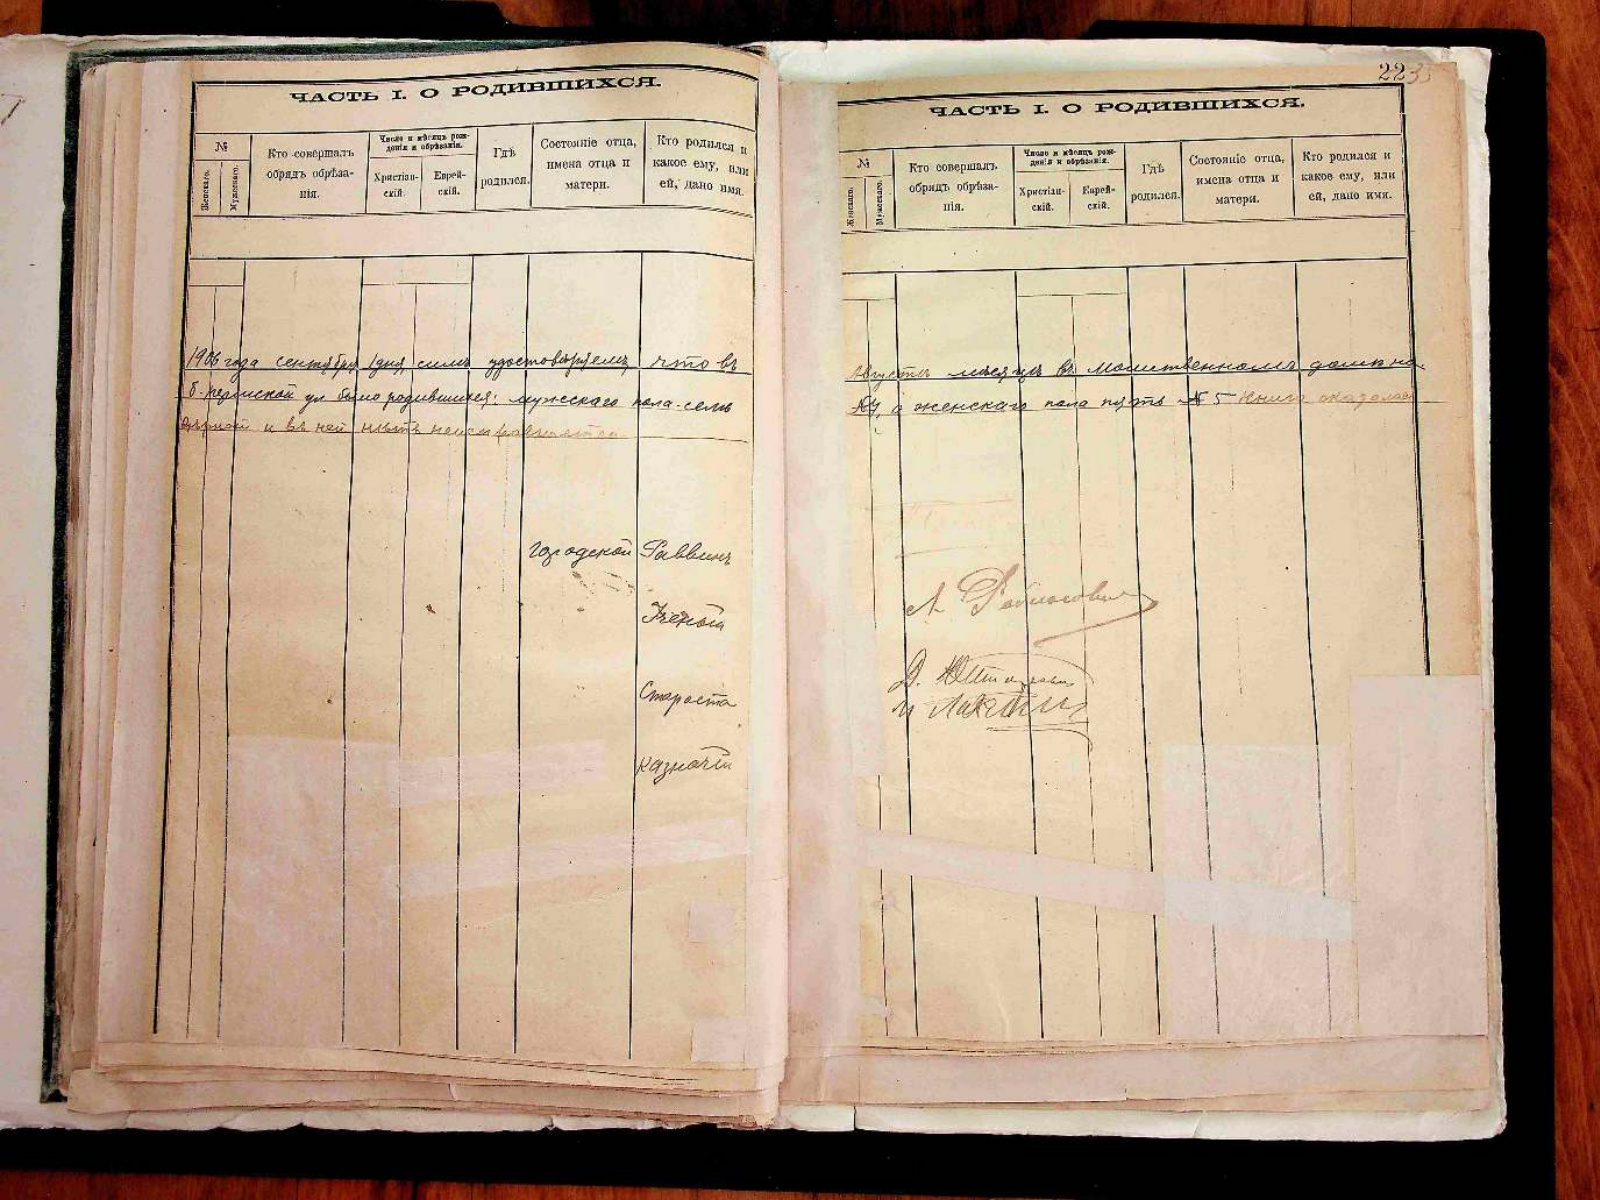 ЧАСТЬ I. О РОДИВШИХСЯ.
№
Женскаго.
Мужескаго.
Кто совершалъ
обрядъ обрѣза-
нія.
Число и мѣсяцъ рож-
денія и обрѣзанія.
Христіан-
скій.
Еврей-
скій.
Гдѣ
родился.
Состояніе отца,
имена отца и
матери.
Кто родился и
какое ему, или
ей, дано имя.
1906 года сентября 1 дня, симъ удостовѣряемъ что въ
ул было родившихся: мужескаго пола-семь
вѣрной и въ ней нѣтъ
Городской Раввинъ
Ученый
Староста
Казначей
2235
ЧАСТЬ I. О РОДИВШИХСЯ.
№
Женскаго.
Мужескаго.
Кто совершалъ
обрядъ обрѣза-
нія.
Число и мѣсяцъ рож-
денія и обрѣзанія.
Христіан-
скій.
Еврей-
скій.
Гдѣ
родился.
Состояніе отца,
имена отца и
матери.
Кто родился и
какое ему, или
ей, дано имя.
Августѣ мѣсяцѣ въ Молитвенномъ домѣ на
а женскаго пола пять № 5 Книга оказалась